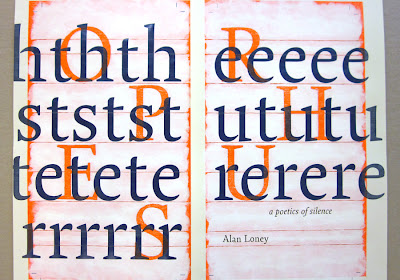 hthth eeeee
O R
ststst ututu
P H
tetete rerere
E U
rrrrrr
S
a poetics of silence
Alan Loney